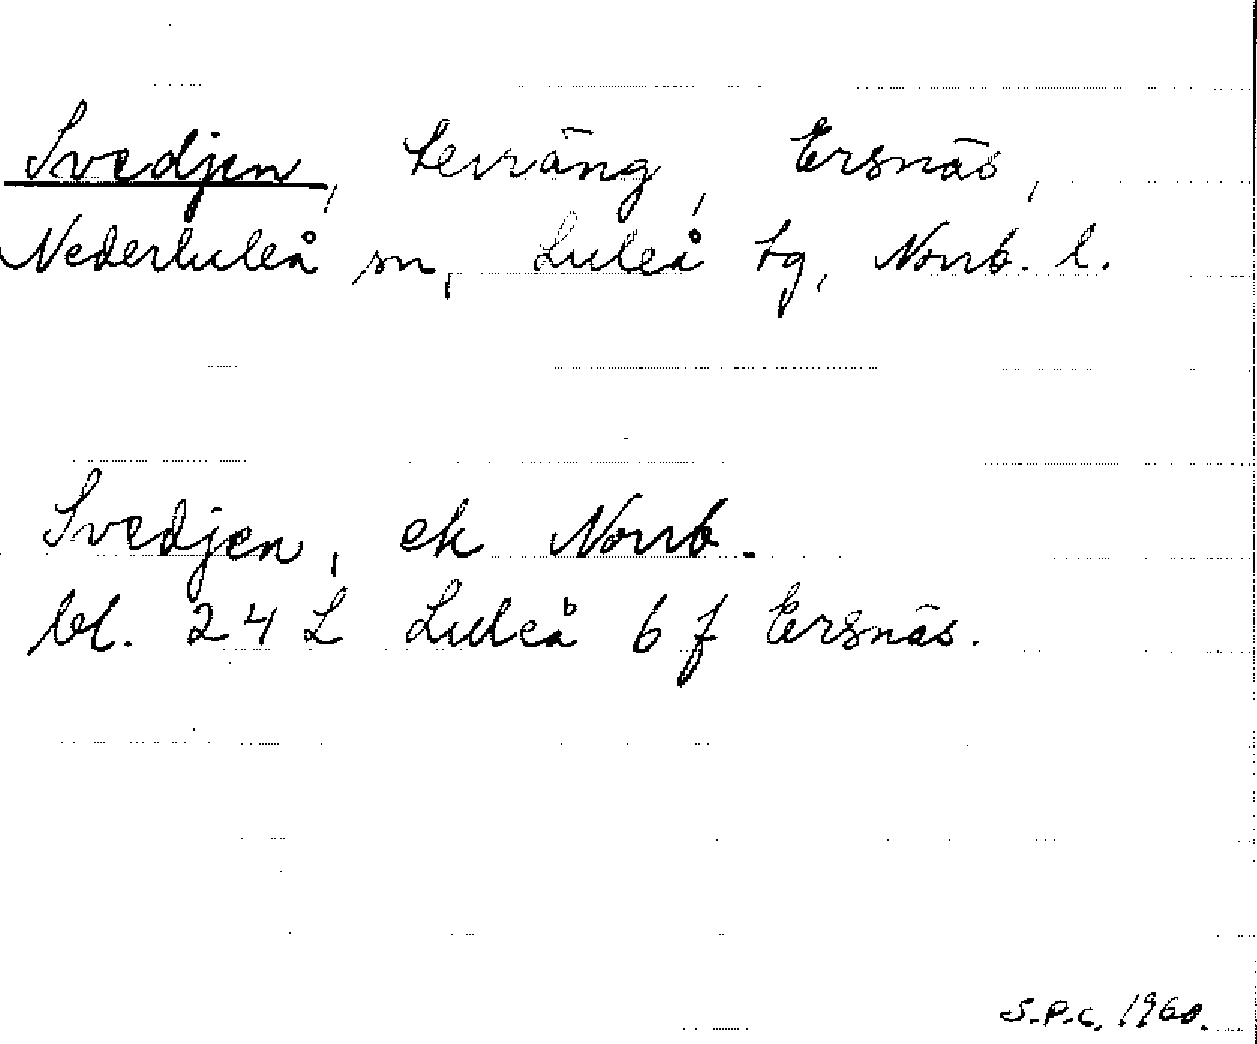 Svedjen, terräng, Ersnäs,
Nederluleå sn, Luleå tg, Norrb. l.
Svedjen, ek Norrb.
bl. 24 L Luleå 6 f Ersnäs.
S.P.C. 1960.